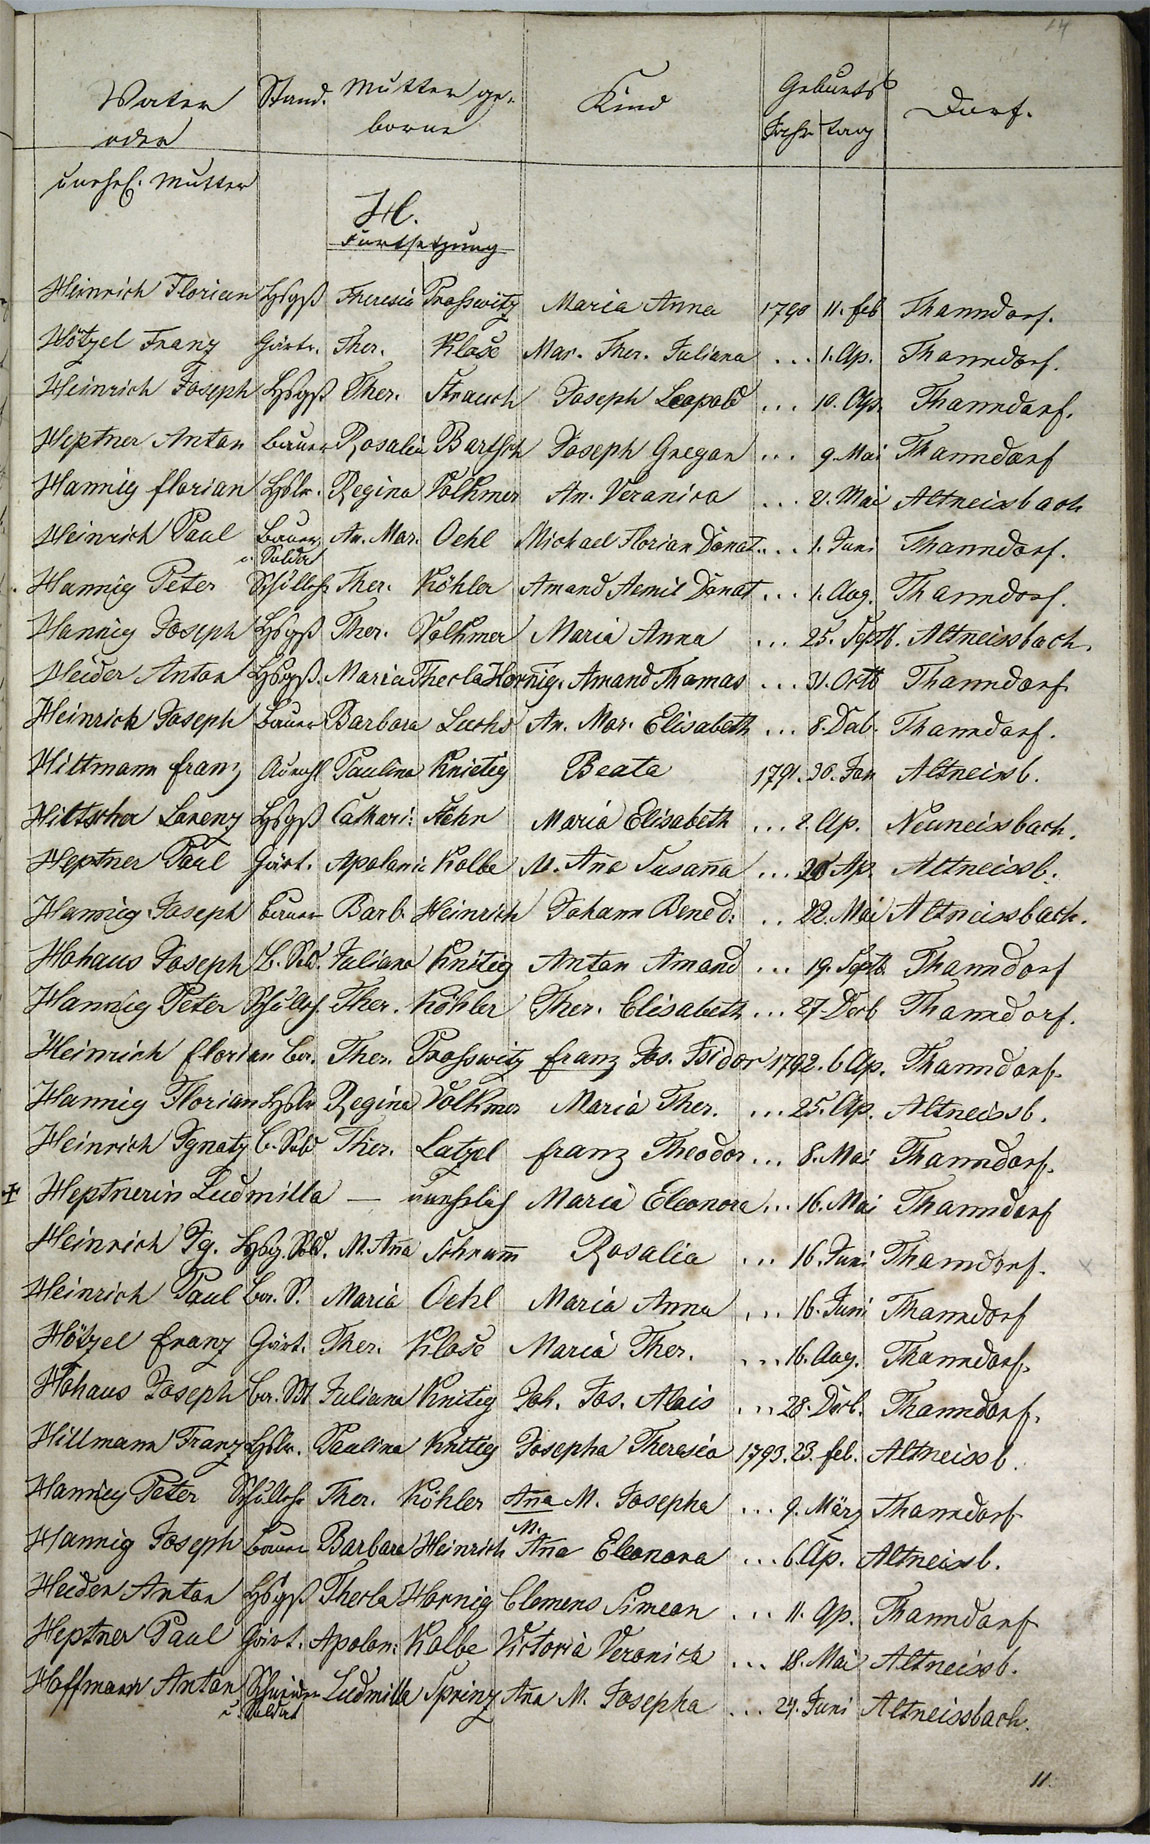 Vater oder unehel. Mutter Stand. Mutter ge- borne Kind Geburts Jahr tag Dorf.
H.
Fortsetzung
Heinrich Florian Hsgß Theresia Prosswitz Maria Anna 1790 11. feb Thanndorf.
Hötzel Franz Gärtr. Ther. Klose Mar. Ther. Juliana ... 1. Ap. Thanndorf.
Heinrich Joseph Hsgß Ther. Strauch Joseph Leopold ... 10. Ap. Thanndorf.
Heptner Anton bauer Rosalia Bartsch Joseph Gregor ... 9. Mai Thanndorf
Hannig florian Hslr. Regina Volkmer An. Veronica ... 21. Mai Altneissbach
Heinrich Paul Bauer u. Soldat An. Mar. Oehl Michael Florian Donat ... 1. Juni Thanndorf.
Hannig Peter Schullehr Ther. Köhler Amand Aemil Donat ... 1. Aug. Thanndorf.
Hannig Joseph Hsgß Ther. Volkmer Maria Anna ... 25. Septb. Altneissbach.
Heider Anton Hsgß. Maria Thecla Hornig. Amand Thomas ... 31. Octb Thanndorf
Heinrich Joseph bauer Barbara Luchs An. Mar. Elisabeth ... 8. Deb. Thanndorf.
Hittmann franz Paulina Knietig Beata 1791. 30. Jan Altneissb.
Hiltscher Lorenz Hsgß Cathari: Hehn Maria Elisabeth ... 2. Ap. Neuneissbach.
Heptner Paul Gärt. Apoloni Kolbe M. Ana Susana ... Ap. Altneissb.
Hannig Joseph bauer Barb. Heinrich Johann Bened: .. 22. Mai Altneissbach.
Hohaus Joseph b. Sold. Juliana Knitig Anton Amand ... 19. Septb Thanndorf
Hannig Peter Schullehr. Ther. Köhler Ther. Elisabeth ... 27. Decb Thanndorf.
Heinrich florian br. Ther. Prosswitz franz Jos. Isidor 1792. 6 Ap. Thanndorf.
Hannig Florian Hslr Regina Volkmer Maria Ther. ... 25. Ap. Altneissb.
Heinrich Ignatz b. Sold Ther. Latzel franz Theodor ... 8. Mai Thanndorf.
Heptnerin Ludmilla — unehelich Maria Eleonora ... 16. Mai Thanndorf
Heinrich Ig. Hsg. Sold. M. Ana Schramm Rosalia ... 16. Juni Thanndorf.
Heinrich Paul br. S. Maria Oehl Maria Anna ... 16. Juni Thanndorf
Hötzel franz Gärt. Ther. Klose Maria Ther. ... 16. Aug. Thanndorf.
Hohaus Joseph br. Slt Juliana Knitig Joh. Jos. Alois ... 28. Decb. Thanndorf.
Hillmann Franz Hslr. Paulina Knitig Josepha Theresia 1793. 23. feb. Altneissb.
Hannig Peter Schullehr Ther. Köhler Ana M. Josepha ... 9. März Thanndorf
Hannig Joseph bauer Barbara Heinrich M. Ana Eleonora ... 6. Ap. Altneissb.
Heider Anton Hsgß Thecla Hornig Clemens Simeon ... 11. Ap. Thanndorf
Heptner Paul Gärt. Apolon: Kolbe Victoria Veronica ... 18. Mai Altneissb.
Hoffmann Anton Schneider u. Soldat Ludmilla Sprinz Ana M. Josepha ... 24. Juni Altneissbach.
11.